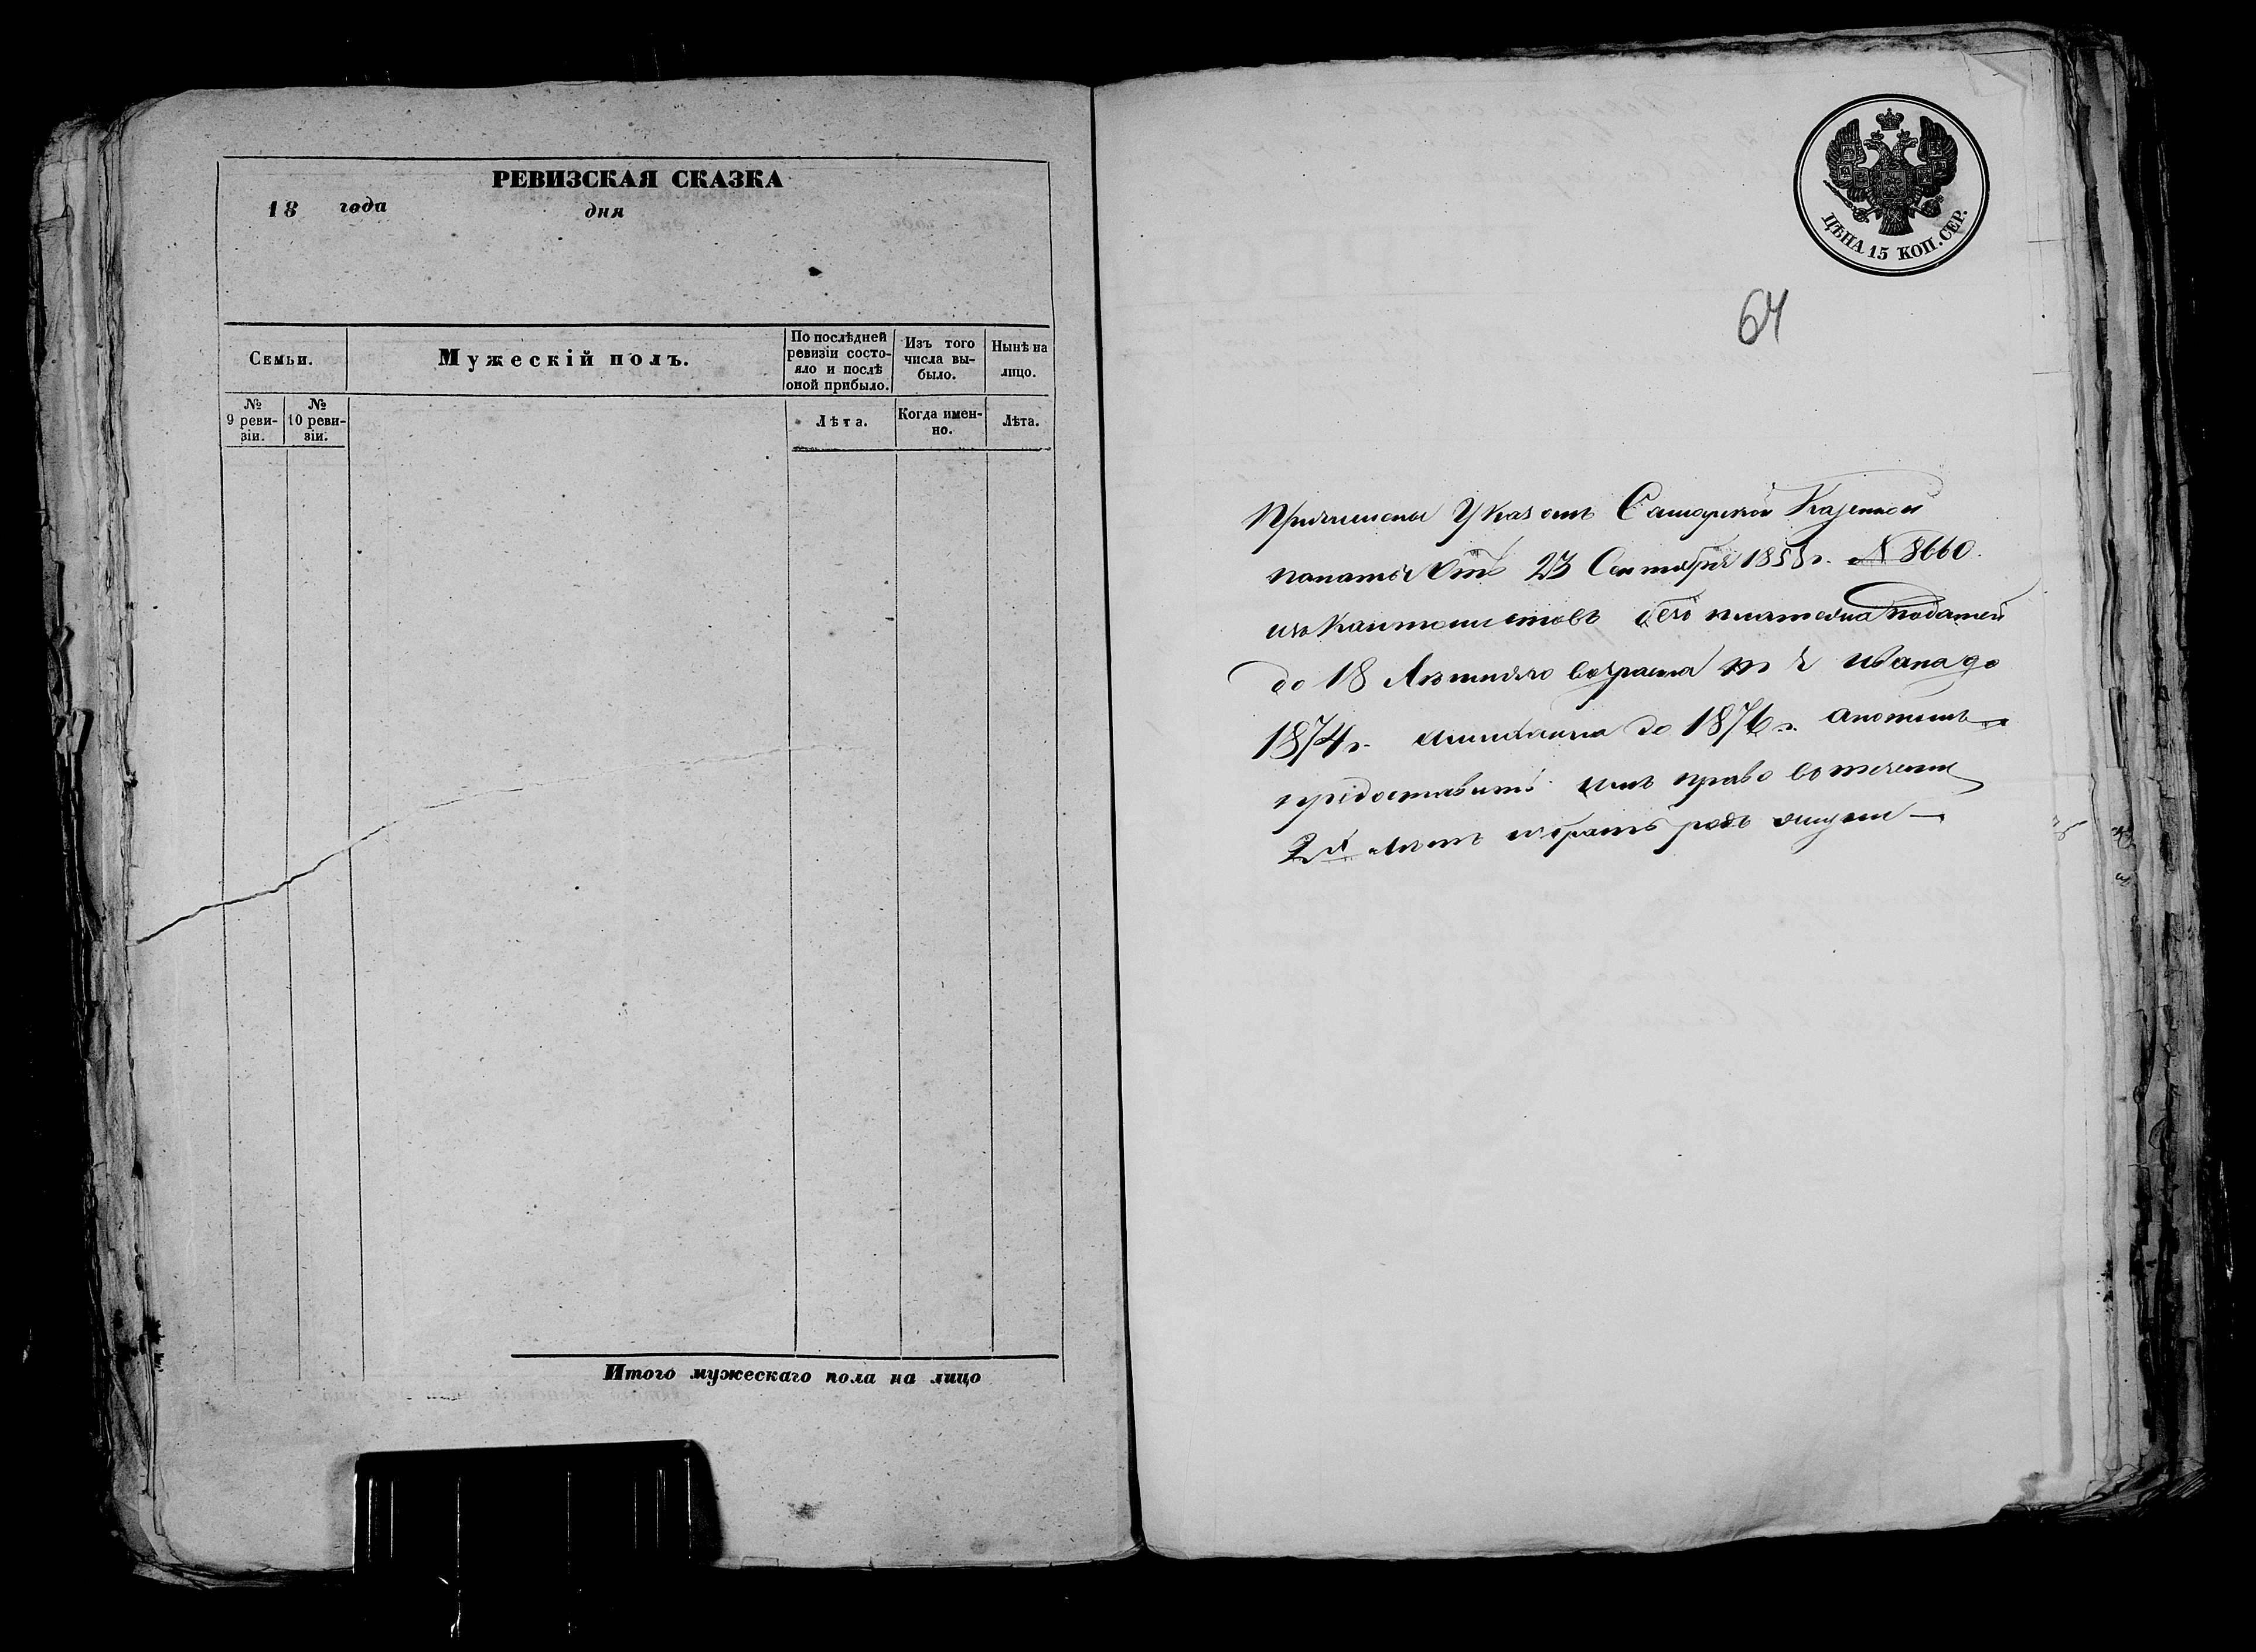 РЕВИЗСКАЯ СКАЗКА
18 года дня
Семьи.
Мужескій полъ.
По послѣдней ревизіи состо-
яло и послѣ
оной прибыло.
Изъ того
числа вы-
было.
Нынѣ на
лицо.
№
9 реви-
зіи.
№
10 реви-
зіи.
Лѣта.
Когда имен-
но.
Лѣта.
Итого мужескаго пола на лицо
ЦѢНА 15 КОП. СЕР.
64
Причислены Указомъ Самарской Казенной
палаты отъ 23 Сентября 1858 г. № 8660.
изъ кантонистовъ безъ платежа податей
до 18 Лѣтняго возраста т е Ивана до
1874 г. до 1876 г. а потомъ
предоставить имъ право в течении
2х лѣтъ избрать родъ жизни